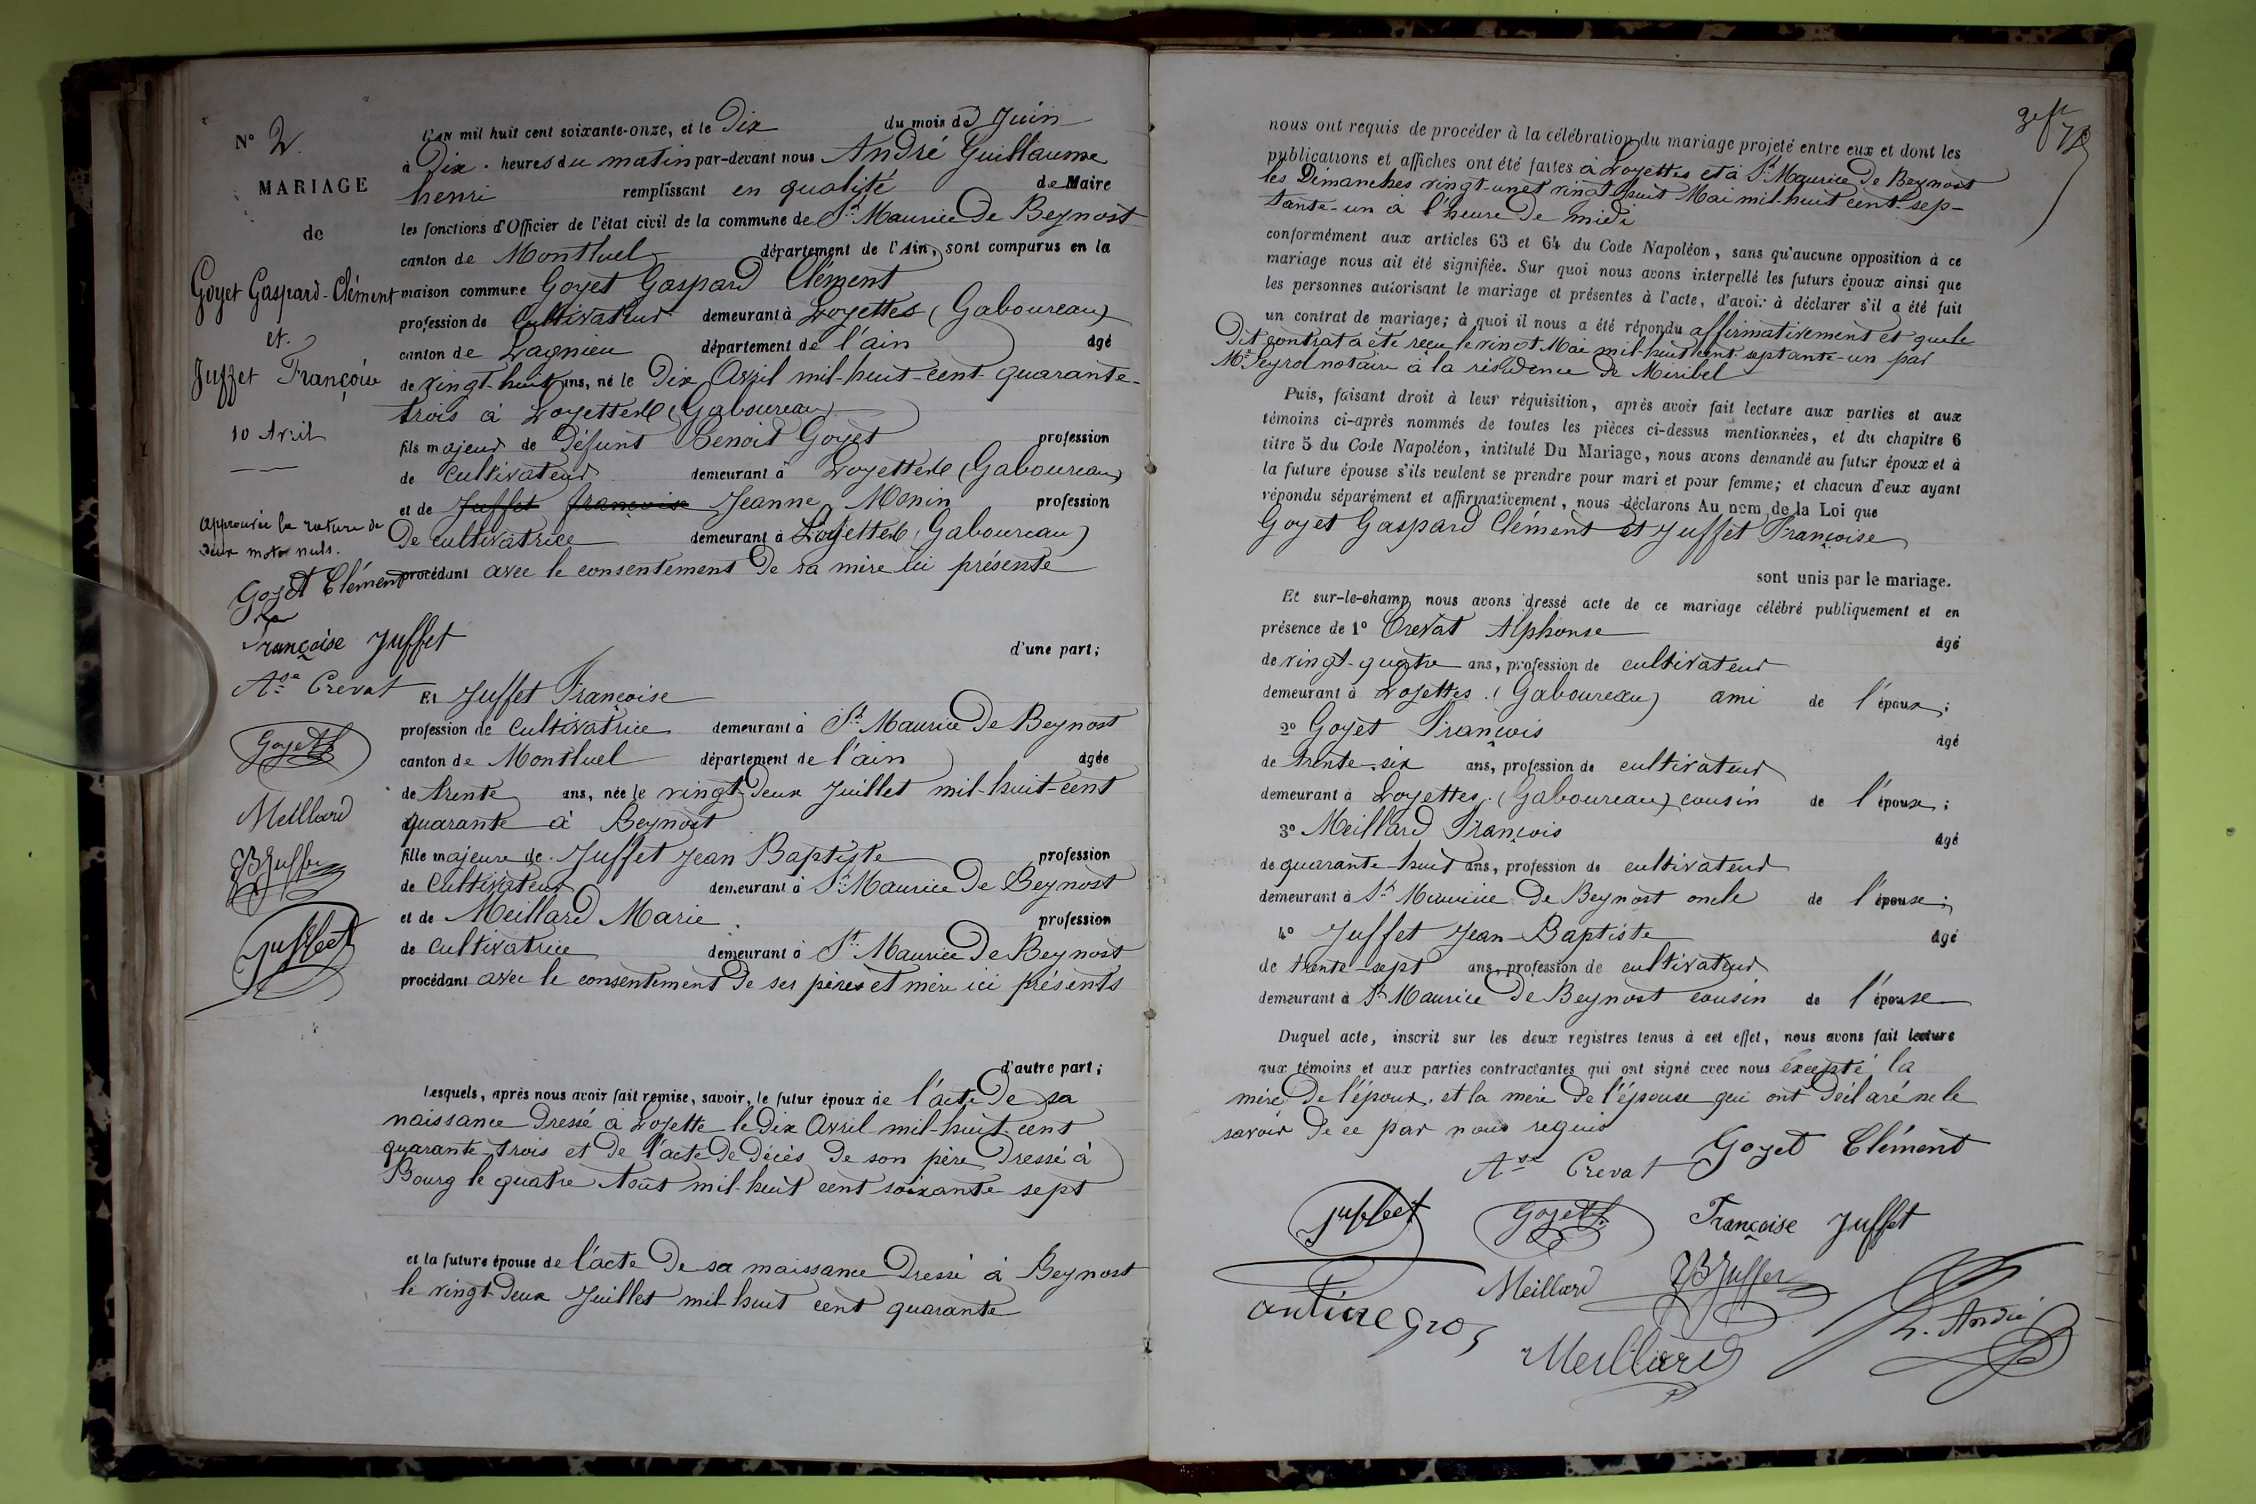 N° 2
MARIAGE
de
Goyet Gaspard-Clément
et
Juffet Françoise
10 Avril
Approuvée la rature de
deux mots nuls.
Goyet Clément
Françoise Juffet
Ase Crevat
Goyet
Meillard
JB Juffet
Juffet
L'AN mil huit cent soixante-onze, et le Dix du mois de Juin
à Dix heures du matin par-devant nous André Guillaume
henri remplissant en qualité de Maire
les fonctions d'Officier de l'état civil de la commune de St Maurice De Beynost
canton de Montluel département de l'Ain, sont comparus en la
maison commune Goyet Gaspard Clément
profession de Cultivateur demeurant à Loyettes (Gaboureau)
canton de Lagnieu département de l'ain âgé
de vingt-huit ans, né le Dix Avril mil-huit-cent-quarante-
trois à Loyettes (Gaboureau)
fils majeur de Défunt Benoit Goyet profession
de Cultivateur demeurant à Loyettes (Gaboureau)
et de Juffet françoise Jeanne Monin profession
De cultivatrice demeurant à Loyettes (Gaboureau)
procédant avec le consentement De sa mère ici présente
d'une part;
Et Juffet Françoise
profession de Cultivatrice demeurant à St Maurice De Beynost
canton de Montluel département de l'ain âgée
de trente ans, née le vingt-Deux Juillet mil-huit-cent
quarante à Beynost
fille majeure de Juffet Jean Baptiste profession
de Cultivateur demeurant à St Maurice De Beynost
et de Meillard Marie profession
de Cultivatrice demeurant à St Maurice De Beynost
procédant avec le consentement De ses pères et mère ici présents
d'autre part;
Lesquels, après nous avoir fait remise, savoir, le futur époux de l'acte De sa
naissance Dressé à Loyette le Dix Avril mil-huit-cent
quarante-trois et De l'acte De Décès De son père Dressé à
Bourg le quatre Aout mil-huit cent soixante-sept
et la future épouse de l'acte De sa naissance Dressé à Beynost
le vingt-Deux Juillet mil-huit cent quarante
nous ont requis de procéder à la célébration du mariage projeté entre eux et dont les
publications et affiches ont été faites à Loyettes et à St Maurice De Beynost
les Dimanches vingt-un et vingt-huit Mai mil-huit cent-sep-
tante-un à l'heure De midi
conformément aux articles 63 et 64 du Code Napoléon, sans qu'aucune opposition à ce
mariage nous ait été signifiée. Sur quoi nous avons interpellé les futurs époux ainsi que
les personnes autorisant le mariage et présentes à l'acte, d'avoir à déclarer s'il a été fait
un contrat de mariage; à quoi il nous a été répondu affirmativement et que le
Dit contrat a été reçu le vingt Mai mil-huit cent septante-un par
Me Peyrol notaire à la résidence De Miribel
Puis, faisant droit à leur réquisition, après avoir fait lecture aux parties et aux
témoins ci-après nommés de toutes les pièces ci-dessus mentionnées, et du chapitre 6
titre 5 du Code Napoléon, intitulé Du Mariage, nous avons demandé au futur époux et à
la future épouse s'ils veulent se prendre pour mari et pour femme; et chacun d'eux ayant
répondu séparément et affirmativement, nous déclarons Au nom de la Loi que
Goyet Gaspard Clément et Juffet Françoise
sont unis par le mariage.
Et sur-le-champ nous avons dressé acte de ce mariage célébré publiquement et en
présence de 1° Crevat Alphonse âgé
de vingt-quatre ans, profession de cultivateur
demeurant à Loyettes (Gaboureau) ami de l'époux;
2° Goyet François âgé
de trente-six ans, profession de cultivateur
demeurant à Loyettes (Gaboureau) cousin de l'époux;
3° Meillard François âgé
de quarante-huit ans, profession de cultivateur
demeurant à St Maurice De Beynost oncle de l'épouse;
4° Juffet Jean-Baptiste âgé
de trente-sept ans, profession de cultivateur
demeurant à St Maurice De Beynost cousin de l'épouse
Duquel acte, inscrit sur les deux registres tenus à cet effet, nous avons fait lecture
aux témoins et aux parties contractantes qui ont signé avec nous excepté la
mère De l'époux et la mère De l'épouse qui ont Déclaré ne le
savoir De ce par nous requis
Ase Crevat Goyet Clément
Juffet Goyet Françoise Juffet
Meillard JB Juffet
h. André
Meillard